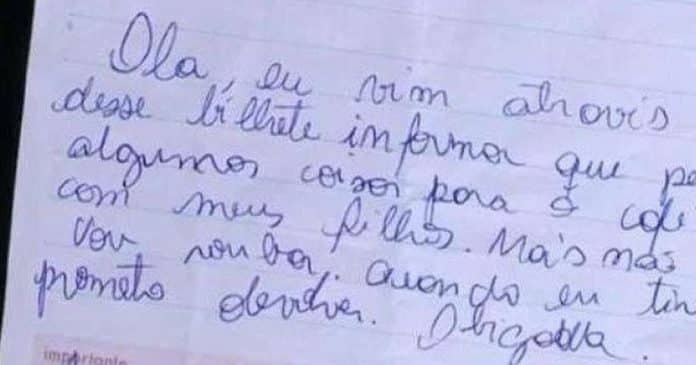 Ola, eu vim atravis
desse bilhete informar que pe
algumas coisas para o cafe
com meus filhos. Mais mas
Vou rouba, quando eu tin
prometo devolver. Obigada.
importante